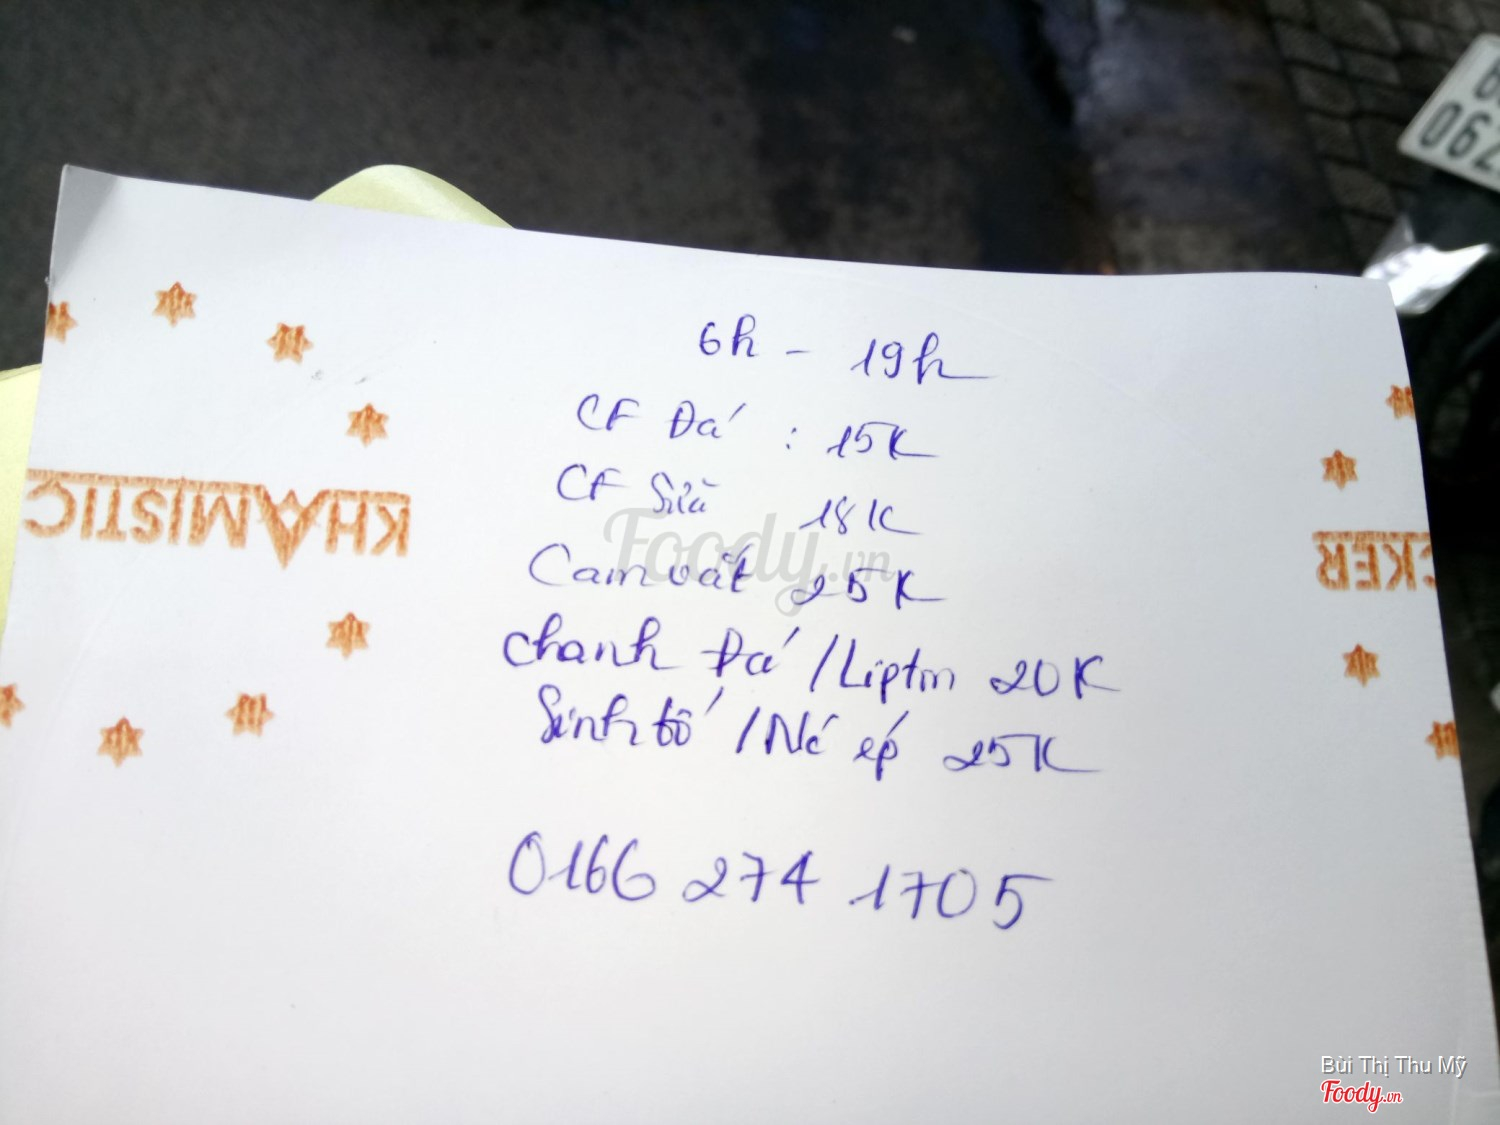 6h - 19h
CF Đá : 15K
CF Sữa 18K
Cam vắt 25K
chanh Đá / Lipton 20K
Sinh tố / Nc ép 25K
0166 274 1705
KHAMISTIC
CKER
790
Foody.vn
Bùi Thị Thu Mỹ
Foody.vn